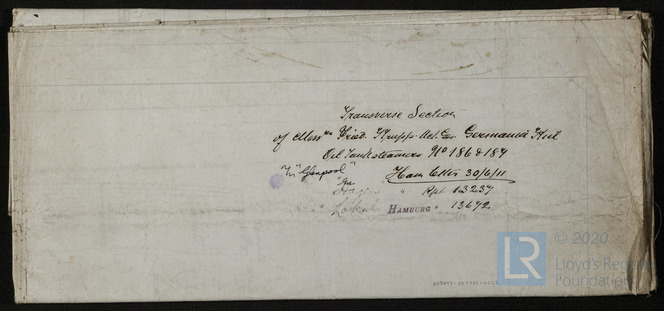 Transverse Section
of Messrs Fried. Krupp Act. Ges. Germania Kiel
Oil Tanksteamers No 186 & 187
Ham letter 30/6/11
" Rpt 13237
"Hagen"
"Loki" HAMBURG 13672
© 2020
LR
Lloyd's Register
Foundation